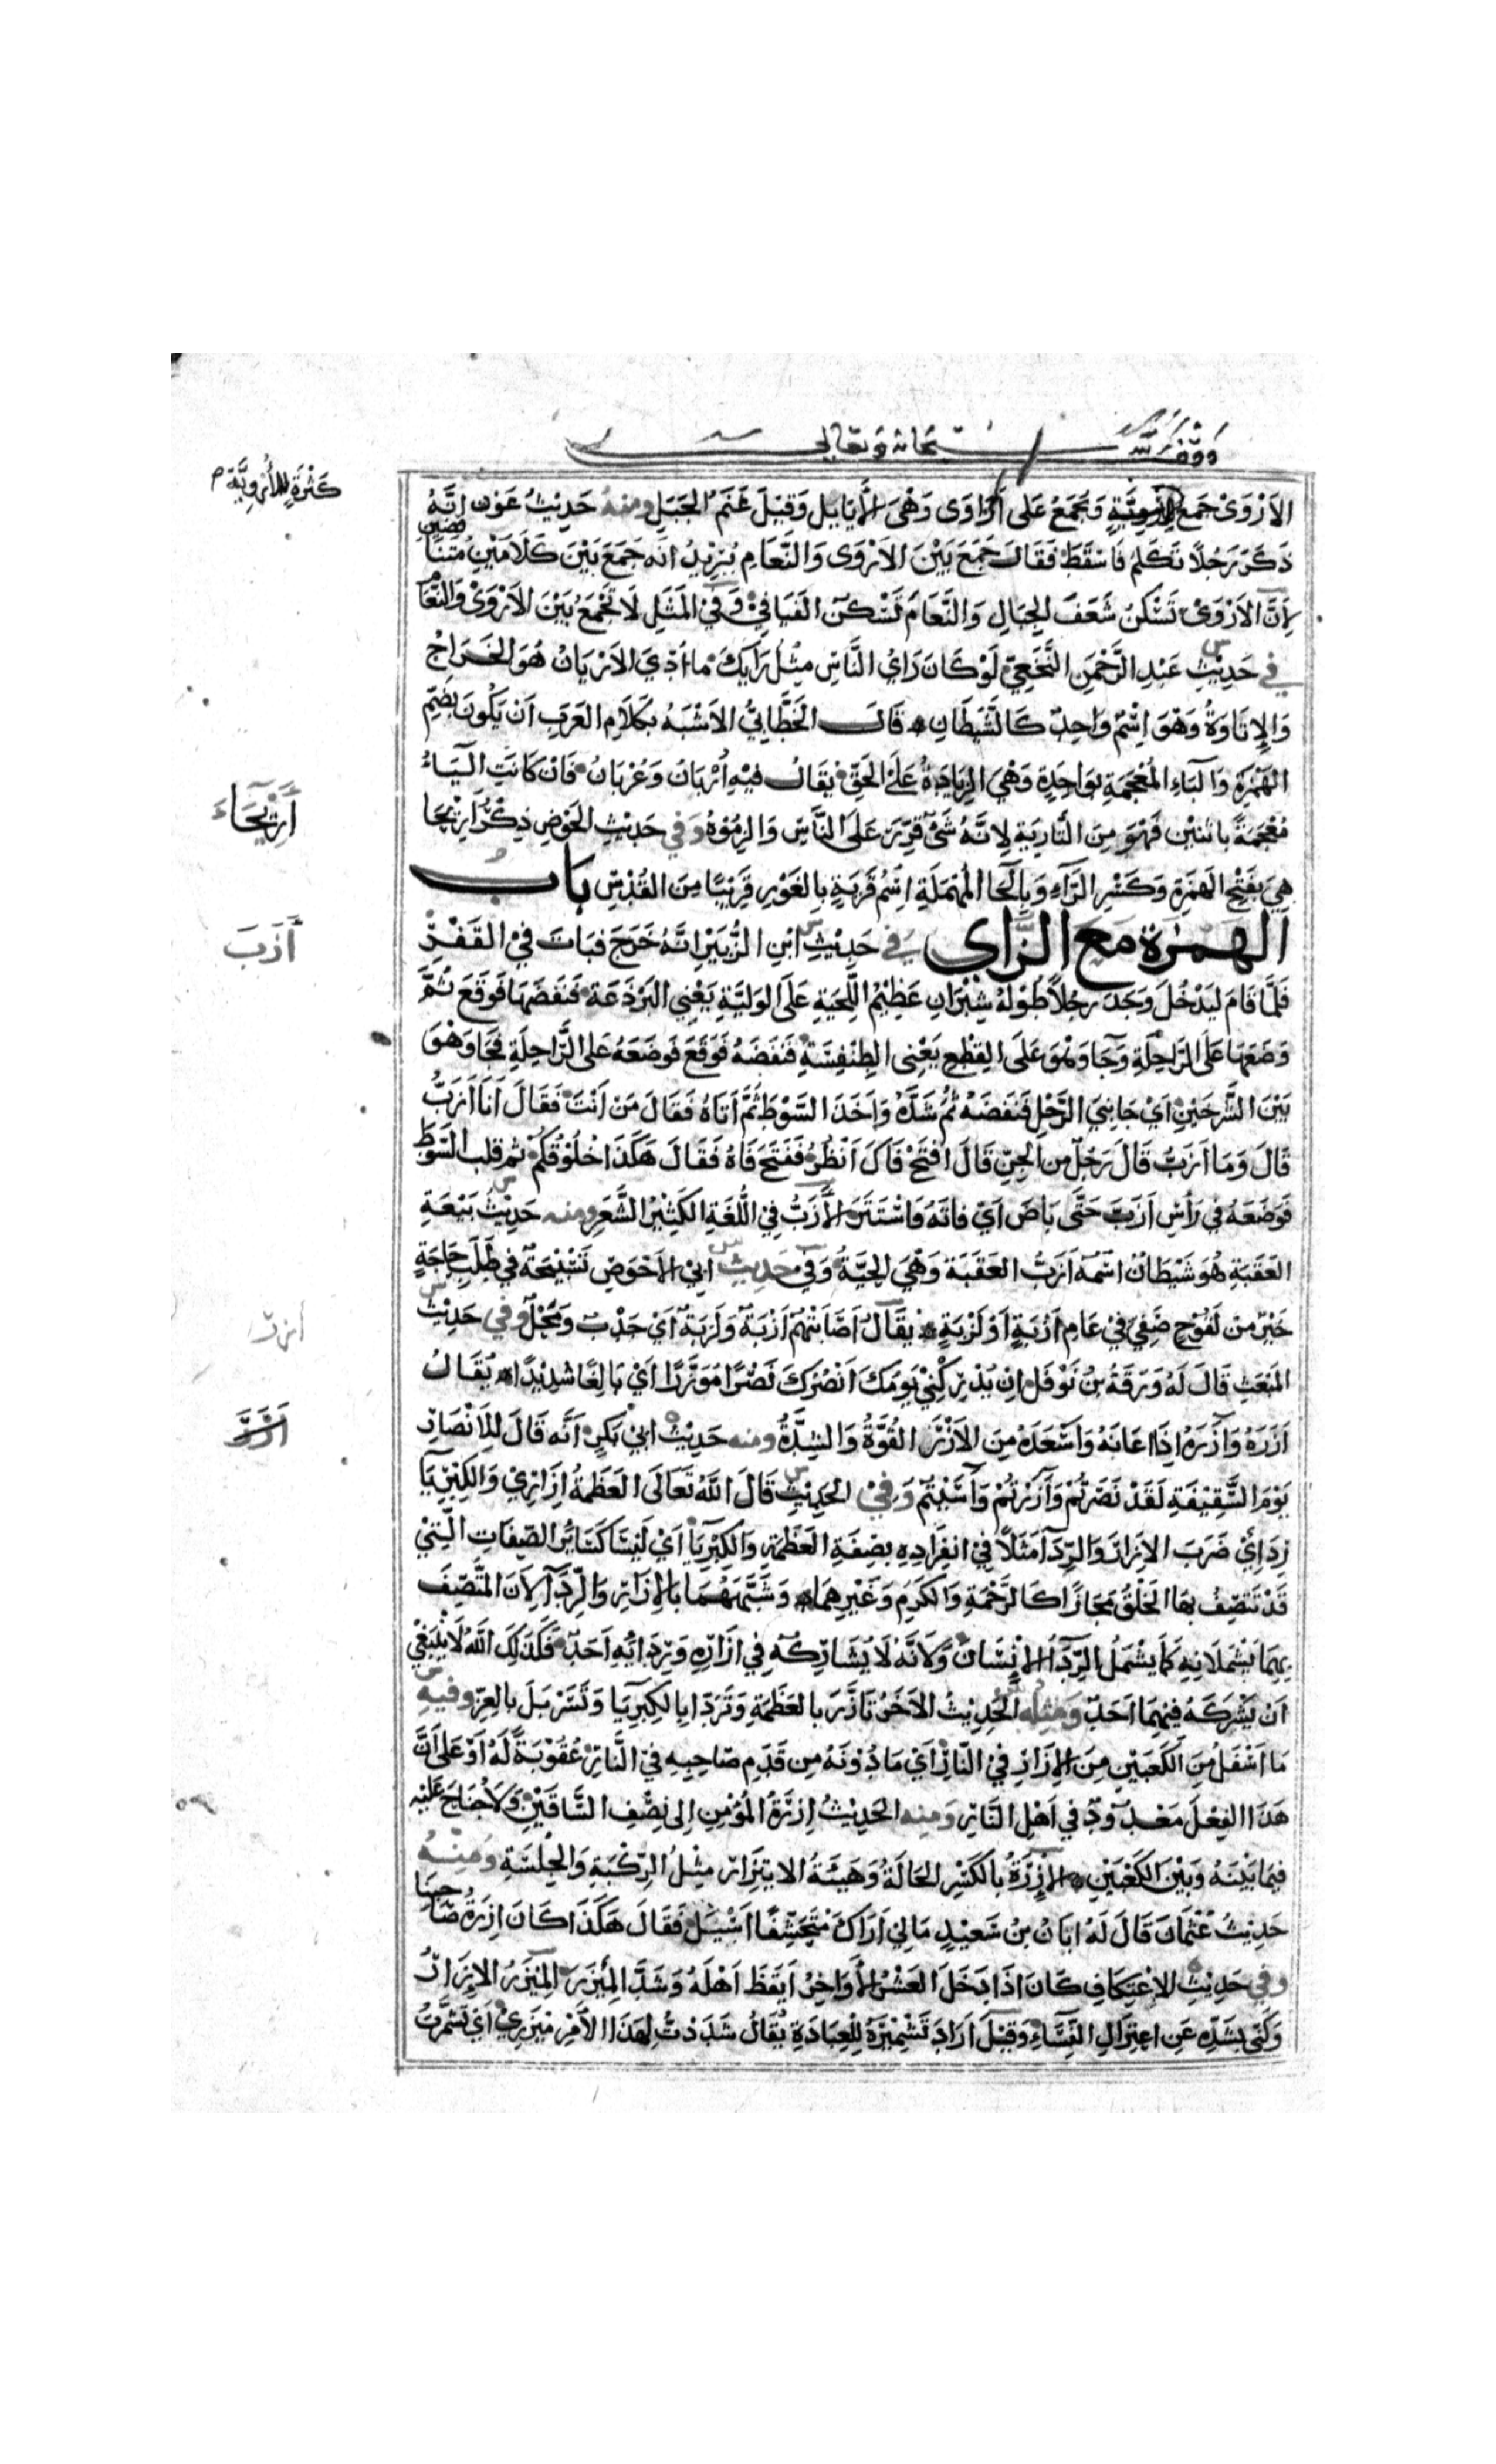 وقف لله سبحانه وتعالى
كثرة للأروية م
الاَرْوَى جَمع كثرةٍ للأُروِيَّةِ وَتُجمَعُ عَلى اَرَاوَى وَهْيَ الأَيَايل وَقِيْلَ غَنَم الجَبَلِ ومنهُ حَدِيْثُ عَوْن اِنَّهُ
ذَكَرَ رَجُلًا تَكَلمَ فَاسْقَطَ فَقَالَ جَمَعَ بَيْنَ الاَرْوَى وَالنَّعَامِ يُرِيْدُ انَّه جَمَعَ بَيْنَ كَلَامَيْنِ مُتَنَاقضين
لِأَنَّ الاَرْوَى تَسْكنُ شَعَفَ الجِبَالِ وَالنَّعَامَ تَسْكنُ الفَيَافِيْ وَفي المَثَلِ لَا تَجْمَعْ بَيْنَ الاَرْوَى وَالنَّعَامِ
في حَدِيْثِ عَبْدِ الرَّحْمَنِ النَّخَعِيّ لَوْ كَانَ رَاىُ النَّاسِ مِثْلَ رَايِكَ مَا اُدّيَ الاَرْيَانُ هُوَ الخَرَاجُ
وَالإِتَاوَةُ وَهْوَ اِسْمٌ وَاحِدٌ كَالشَّيْطَانِ قَالَ الخَطَّابيُّ الاَشْبَهُ بكَلَامِ العَرَبِ اَنْ يَكُونَ بِضَمِّ
الهَمْزَةِ وَالبَاءِ المُعْجَمَةِ بِوَاحِدَةٍ وَهْيَ الزِيَادَةُ عَلَى الحَقّ يُقَالُ فيْهِ اُرْبَانٌ وَعُرْبَانٌ فَاِنْ كَانَتِ اليَاءُ
أَرِيْحَاءَ
مُعْجَمَةً باثنتَيْن فَهْوَ مِنَ التَّارِيَةِ لِاَنَّهُ شَىْءٌ قُرِّرَ عَلَى النَّاسِ وَالزِمُوْهُ وَفي حَدِيْثِ الحَوْضِ ذِكْرُ اَرِيْحَا
هِيَ بِفَتْحِ الهَمْزَةِ وَكَسْرِ الرَّآءِ وَبِالحَا المُهْمَلَةِ اسْمُ قَرْيَةٍ بِالغَوْرِ قَرِيْبًا مِنَ القُدْسِ بابُ
أَزَبَ
الهمزة مع الزَّاي في حَدِيْثِ ابْنِ الزُّبَيْرِ اِنَّهُ خَرَجَ فبَاتَ فيْ القَفْرِ
فَلَمَّا قَامَ ليَدْخُلَ وَجَدَ رَجُلاً طُوْلهُ شِبْرَانِ عَظِيْمُ اللِّحْيَةِ عَلَى الوَلِيَّةِ يَعْنِي البَرْذَعَة فَنَفَضَهَا فَوَقَعَ ثُمَّ
وَضَعَهَا عَلَى الرَّاحِلَةِ وَجَا وَهْوَ عَلَى القِطْعِ يَعْنِي الطِنْفِسَةَ فَنَفَضَهُ فَوَقَعَ فَوَضَعَهُ عَلى الرَّاحِلَةِ فَجَا وَهْوَ
بَيْنَ الشَّرْخَيْنِ اَيْ جَانِبَي الرَّحْلِ فَنَفَضَهُ ثُمَّ شَدَّهُ وَاَخَذَ السَّوْطَ ثُمَّ اَتَاهُ فَقَالَ مَنْ اَنْتَ فَقَالَ اَنَا اَزَبُّ
قَالَ وَمَا اَزَبُّ قَالَ رَجُلٌ مِن الجِنّ قَالَ افْتَحْ فَاكَ اَنْظُرُ فَفَتَحَ فَاهُ فَقَالَ هَكَذَا حُلُوْقُكُمْ ثم قلب السَّوطَ
فَوَضَعَهُ في رَاْسِ اَزَبَّ حَتَّى بَاصَ اَيْ فَاتَهُ وَاسْتَتَرَ الأَزَبُّ في اللُّغَةِ الكَثِيْرُ الشَّعَرِ ومنه حَدِيْثُ بَيْعَةِ
العَقَبَةِ هُوَ شَيْطَانٌ اسْمُهُ اَزَبُّ العَقَبَة وَهْيَ الحَيَّةُ وَفي حَدِيثِ ابي الاَحْوَصِ تَسْبِيْحَةٌ في طَلَبِ حَاجَةٍ
أزر
خَيْرٌ مِن لَقُوْحٍ صَفِيّ فيْ عَامِ اَزْبَةٍ اَوْ لَزْبَةٍ يُقَالُ اَصَابَتْهُمْ اَزْبَةٌ وَلَزْبَةٌ اَيْ جَدْبٌ وَمَحْلٌ وفي حَدِيْثِ
المَبْعَثِ قَالَ لَهُ وَرَقَةُ بنُ نَوْفَل اِنْ يُدْرِكْنِيْ يَوْمُكَ اَنْصُرْكَ نَصْرًا مُؤَزَّرًا اَيْ بَالِغًا شَدِيْدًا يُقَالُ
اَزَرَهُ وَآزَرَهُ اِذَا اعَانَهُ وَاَسْعَدَهُ مِنَ الاَزْرِ القُوَّةُ وَالشِدَّةُ ومنه حَدِيْثُ ابيْ بَكرٍ اَنَّه قَالَ لِلاَنْصَارِ
يَوْمَ السَّقِيْفَةِ لَقَدْ نَصَرْتُمْ وَآزَرْتُمْ وَآسَيْتُمْ وَفيْ الحَدِيْثِ قَالَ اللَّهُ تَعَالَى العَظَمَةُ اِزَارِيْ وَالكِبْرِيَا
رِدَائِيْ ضَرَبَ الاِزَارَ وَالرِّدَآ مَثَلًا فيْ انفِرَادِهِ بِصِفَةِ العَظَمَةِ وَالكِبْرِيَا اَيْ لَيْسَتَا كَسَايُرِ الصِّفَاتِ الَّتِيْ
قَدْ يَتَّصِفُ بهَا الخَلْقُ مَجَازًا كَالرَّحْمَةِ وَالكَرَمِ وَغَيْرِهِمَا وَشَبَّهَهُمَا بِالاِزَارِ وَالرِّدَآ لِاَنَ المُتَّصِفَ
بِهِمَا يَشْمَلَانِهِ كَمَا يَشْمَلُ الرِّدَآءُ الاِنْسَانَ وَلِاَنَّه لَا يُشَارِكُهُ فِي اِزَارِهِ وَرِدَائِهِ اَحَدٌ فَكَذَلِكَ اللَّهُ لَا يَنْبَغِيْ
اَنْ يَشْرَكَهُ فِيْهِمَا اَحَدٌ وَمِثْله الحَدِيْثُ الاَخَرُ تَاَزَّرَ بِالعَظَمَةِ وَتَرَدَّا بِالكِبْرِيَا وَتَسَرْبَلَ بالعِزّ وفيهِ
مَا اَسْفَلَ مِنَ الكَعْبَيْنِ مِنَ الاِزَارِ فيْ النَّارِ اَيْ مَا دُوْنَهُ مِن قَدَمِ صَاحِبِهِ فيْ النَّارِ عُقُوْبَةً لَهُ اَوْ عَلَى اَنَّ
هَذَا الفِعْلَ مَعْدُوْدٌ في اَهْلِ النَّارِ وَمنه الحَدِيْثُ اِزْرَةُ المُؤْمِنِ اِلى نِصْفِ السَّاقَيْنِ وَلَا جُنَاحَ عَلَيْه
فِيمَا بَيْنَهُ وَبَيْنَ الكَعْبَيْنِ الاِزْرَةُ بِالكَسْرِ الحَالَةُ وَهَيْئَةُ الايْتِزَارِ مِثْلُ الرِكْبَةِ وَالجِلْسَةِ وَمِنْهُ
حَدِيْثُ عُثْمَانَ قَالَ لَهُ ابَانُ بنُ سَعِيْدٍ مَا لي اَرَاكَ مُتَحَشِّفًا اَسْبِلْ فَقَالَ هَكَذَا كَانَ اِزْرَةُ صَاحِبنا
وفي حَدِيْثِ الاِعْتِكَافِ كَانَ اذَا دَخَلَ العَشْرُ الأَوَاخِرُ اَيْقَظَ اَهْلَهُ وَشَدَّ المِئْزَرَ المِيْزَرُ الاِزَارُ
وَكَنى بِشَدِّهِ عَنِ اعِتِزَالِ النِّسَاءِ وَقِيْلَ اَرَادَ تَشْمِيْرَهُ لِلْعِبَادَةِ يُقَالُ شَدَدْتُ لِهَذَا الاَمْرِ مِيْزَرِيْ اَيْ تَشَمَّرْتُ